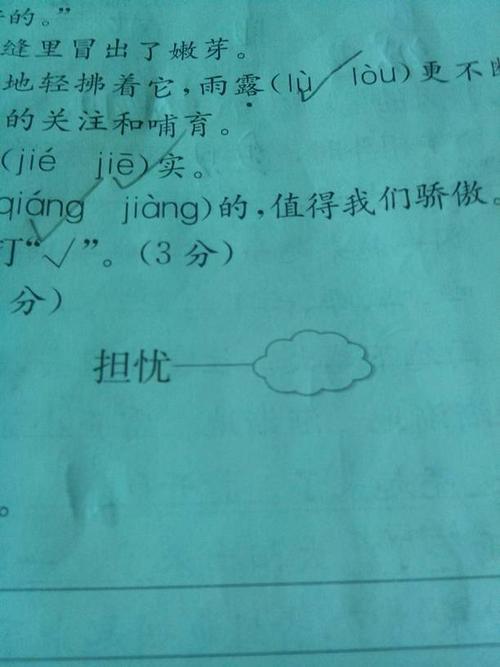 的。”
缝里冒出了嫩芽。
地轻拂着它，雨露(lù lòu)更不
的关注和哺育。
(jié jiē)实。
qiáng jiàng)的，值得我们骄傲。
打“√”。(3分)
分)
担忧
。